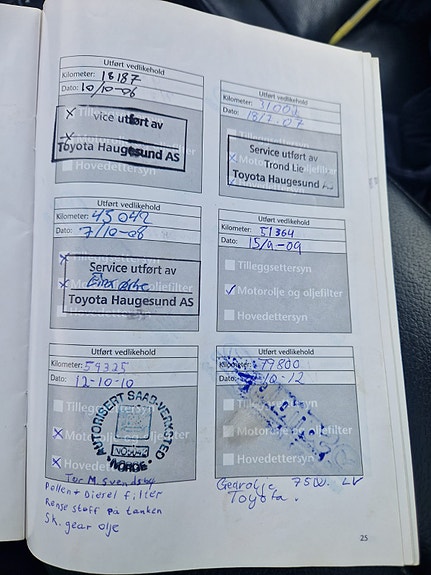 Utført vedlikehold
Kilometer: 18187
Dato: 10/10-06
Tillegg
Service utført av
Toyota Haugesund AS
Hovedettersyn
Utført vedlikehold
Kilometer: 31002
Dato: 18/7-07
Tilleggsettersyn
Service utført av
Trond Lie
Toyota Haugesund AS
Utført vedlikehold
Kilometer: 45042
Dato: 7/10-08
Service utført av
Toyota Haugesund AS
Utført vedlikehold
Kilometer: 51364
Dato: 15/9-09
Tilleggsettersyn
Motorolje og oljefilter
Hovedettersyn
Utført vedlikehold
Kilometer: 59325
Dato: 12-10-10
Tilleggsettersyn
Motorolje og oljefilter
Hovedettersyn
AUTORISERT SAAB-VERKSTED
NORGE
Tor M. Svendsby
Pollen + Diesel filter
Rense stoff på tanken
Sk. gear olje
Utført vedlikehold
Kilometer: 79800
Dato: 10-12
Tilleggsettersyn
Motorolje og oljefilter
Hovedettersyn
Gearolje 75W. LV
Toyota.
25